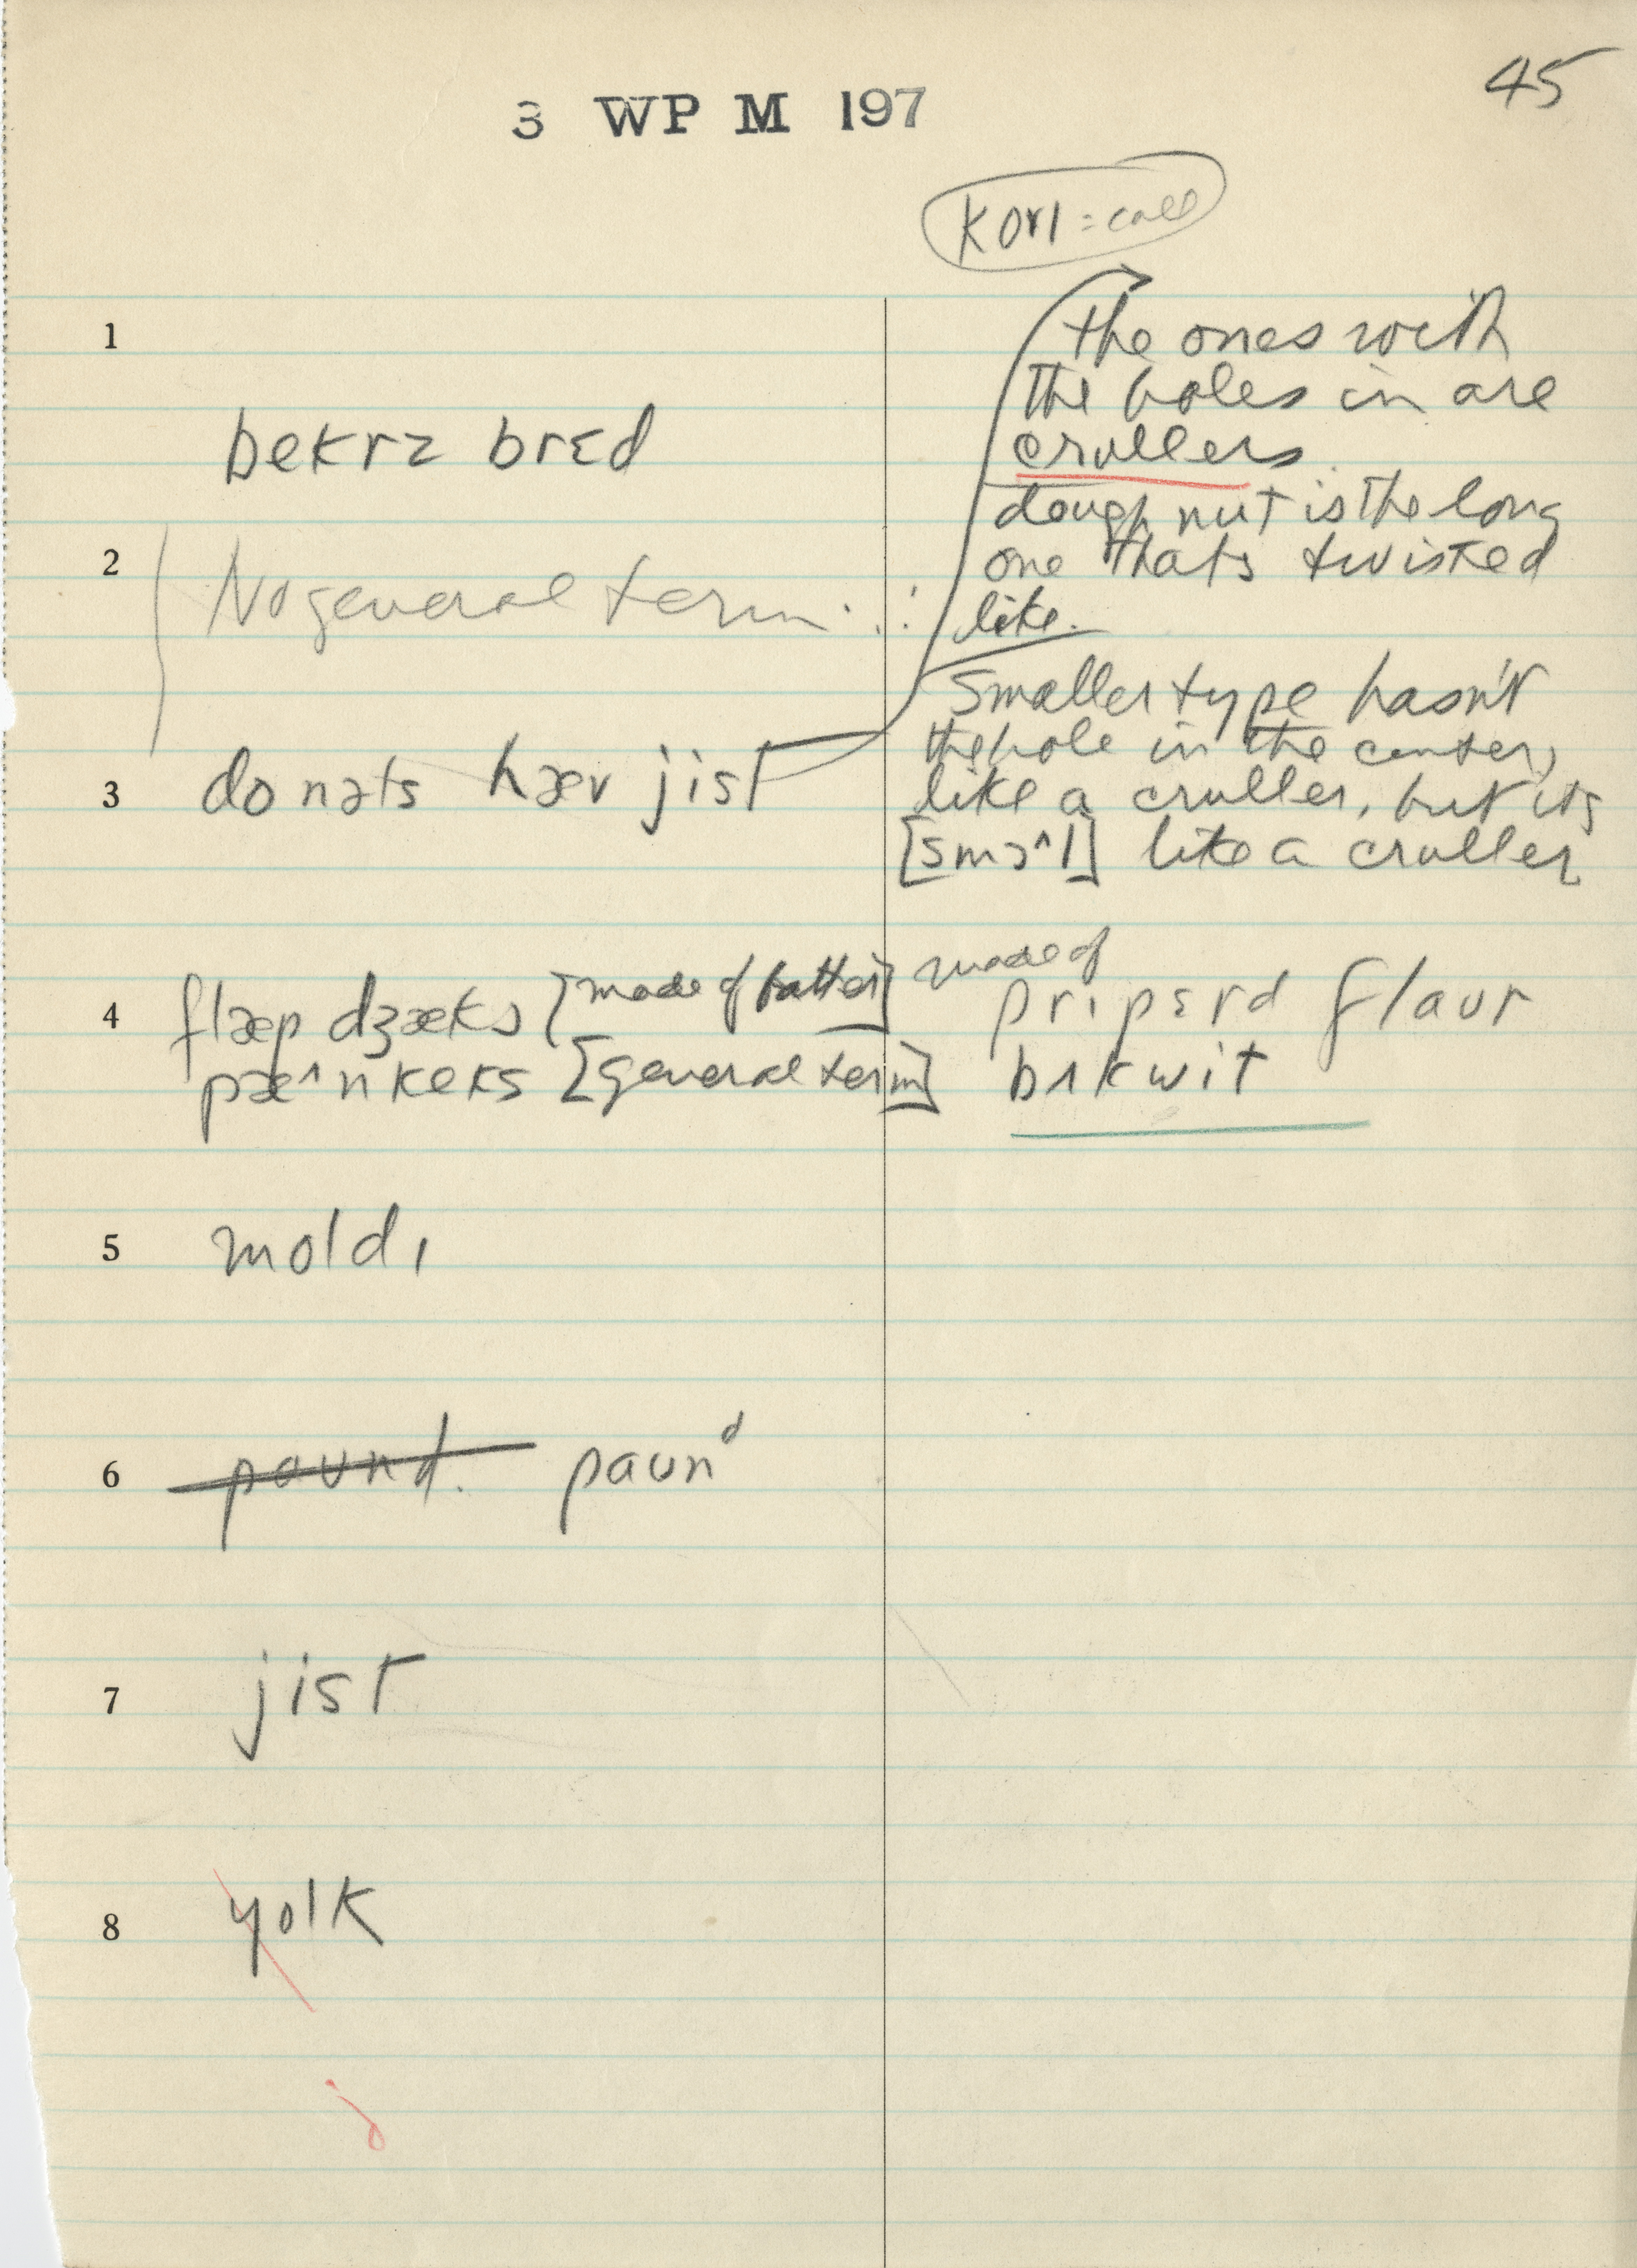 45
3 WP M 197
kɒrl = call
1
the ones with
the holes in are
crullers
bekrz brɛd
doughnut is the long
2
one thats twisted
No general term
like.
Smaller type hasn't
the hole in the center,
3
donəts hæv jist
like a cruller, but its
[smɔ^l] like a cruller
4
flæp dʒæks [made of batter] made of prɪpɛrd flaʊr
pæ^nkeks [general term] bʌkwit
5
moldɪ
6
paʊnd. paʊnᵈ
7
jist
8
yolk
j